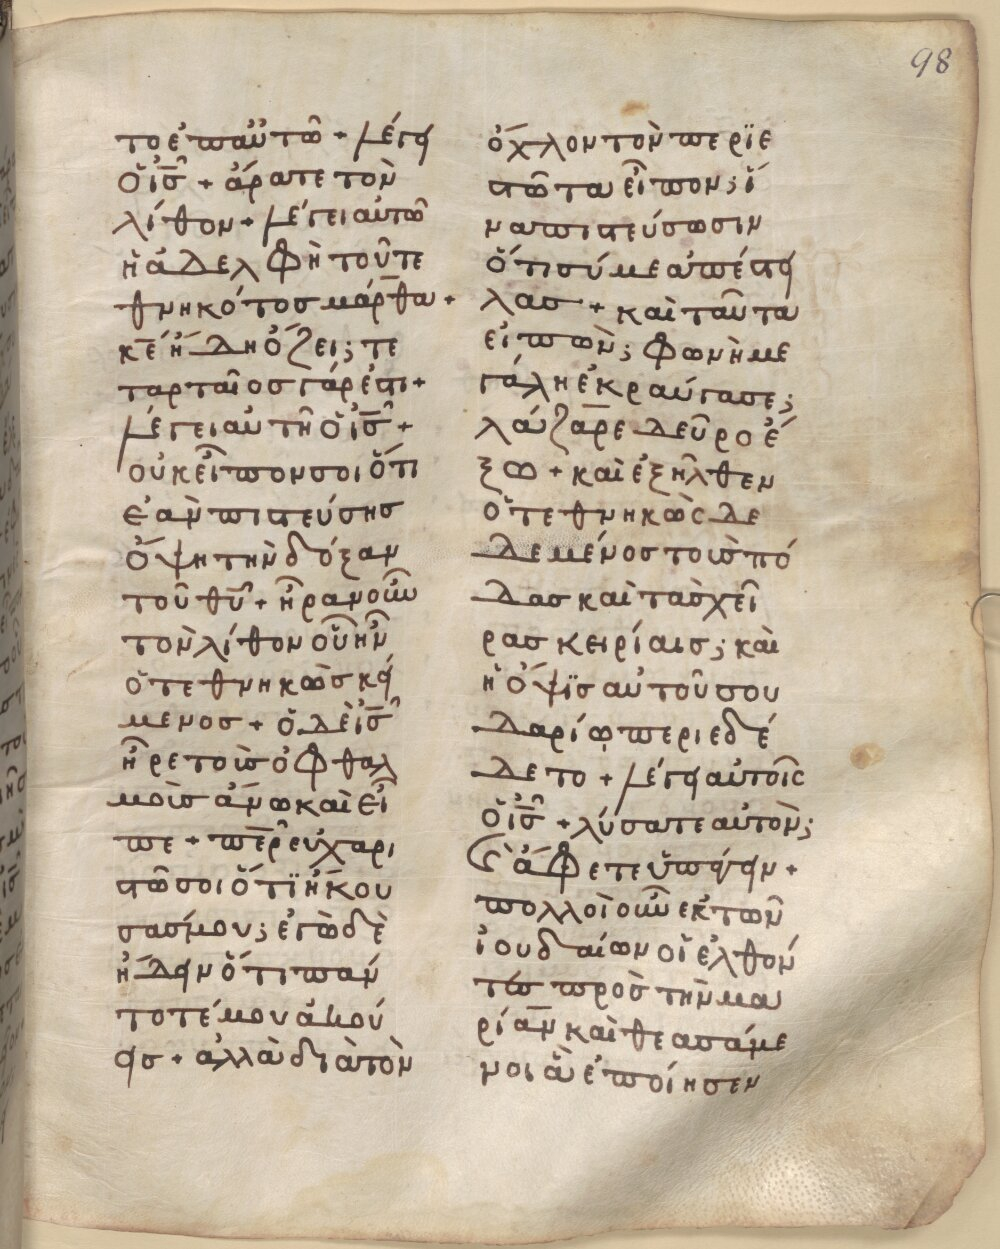 98
το ἐπ αὐτῶ + λέγει
ὁ ἰς̅ + ἄρατε τὸν
λίθον + λέγει αὐτῶ
ἡ ἀδελφὴ τοῦ τε
θνηκότοσ μάρθα +
κε̅ ἤδη ὄζει; τε
ταρταῖοσ γάρ ἐστι +
λέγει αὐτῆ ὁ ἰς̅ +
οὐκ εἶπον σοι ὅτι
ἐὰν πιστεύσησ
ὄψη τὴν δόξαν
τοῦ θυ̅ + ἦραν οὖν
τὸν λίθον οὗ ἦν
ὁ τεθνηκὼσ κεί
μενοσ + ὁ δὲ ἰς̅
ἦρε τοὺσ ὀφθαλ
μοὺσ ἄνω καὶ εἶ
πε + πε̅ρ εὐχαρι
στῶ σοι ὅτι ἤκου
σασ μου; ἐγὼ δὲ
ἤδειν ὅτι πάν
τοτέ μου ἀκού
εισ + ἀλλὰ διὰ τὸν
ὄχλον τὸν περιε
στῶτα εἶπον; ἵ
να πιστεύσωσιν
ὅτι σύ με ἀπέστει
λασ + καὶ ταῦτα
εἰπὼν; φωνὴ με
γάλη ἐκραύγασε;
λάζαρε δεῦρο ἔ
ξω + καὶ ἐξῆλθεν
ὁ τεθνηκὼς δε
δεμένοσ τοὺσ πό
δασ καὶ τὰσ χεῖ
ρασ κειρίαισ; καὶ
ἡ ὄψϊσ αὐτοῦ σου
δαρίω περιεδέ
δετο + λέγει αὐτοῖς
ὁ ἰς̅ + λύσατε αὐτὸν;
ἄφετε ὑπάγειν +
πολλοὶ οὖν ἐκ τῶν
ἰουδαίων οἱ ἐλθόν
τεσ πρὸσ τὴν μα
ρίαν καὶ θεασάμε
νοι ἃ ἐποίησεν